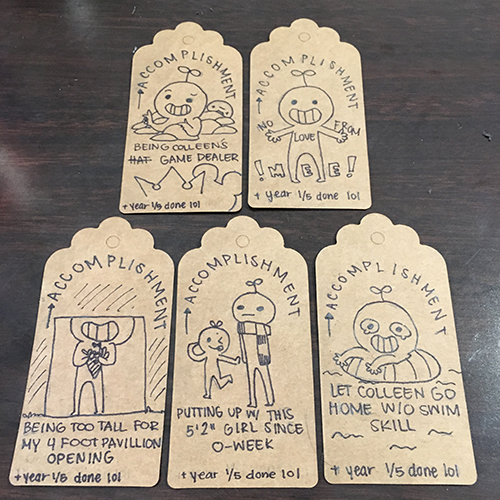 →ACCOMPLISHMENT
BEING COLLEEN'S
HAT GAME DEALER
+ year 1/5 done lol
→ACCOMPLISHMENT
NO LOVE FROM
! MEE !
+ year 1/5 done lol
→ACCOMPLISHMENT
BEING TOO TALL FOR
MY 4 FOOT PAVILLION
OPENING
+ year 1/5 done lol
→ACCOMPLISHMENT
PUTTING UP W/ THIS
5'2" GIRL SINCE
O-WEEK
+ year 1/5 done lol
→ACCOMPLISHMENT
LET COLLEEN GO
HOME W/O SWIM
SKILL
+ year 1/5 done lol